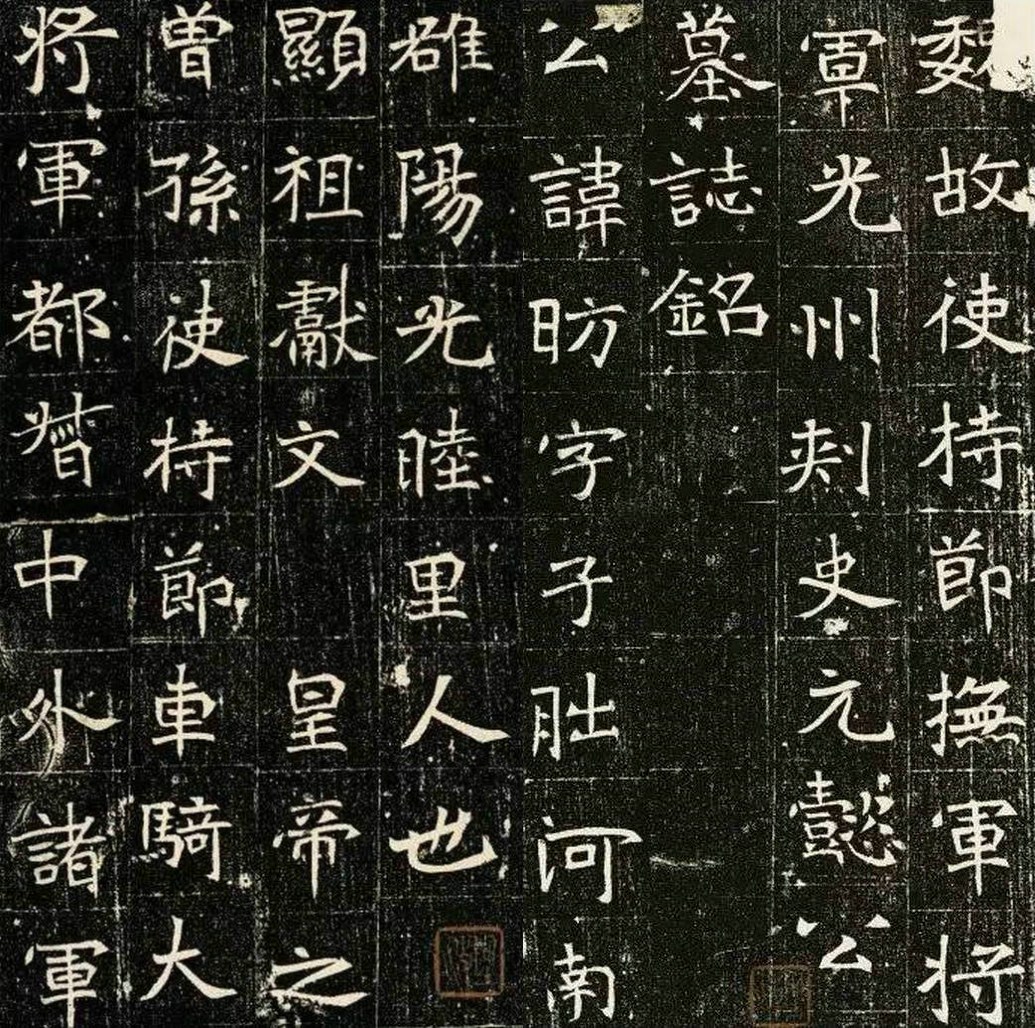 魏故使持節撫軍將
軍光州刾史元懿公
墓誌銘
公諱昉字子朏河南
雒陽光睦里人也
顯祖獻文 皇帝之
曽孫使持節車騎大
將軍都督中外諸軍